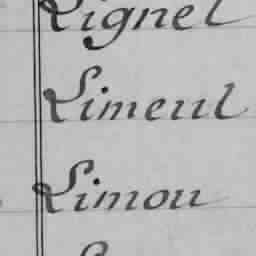 Lignel
Limeul
Limou